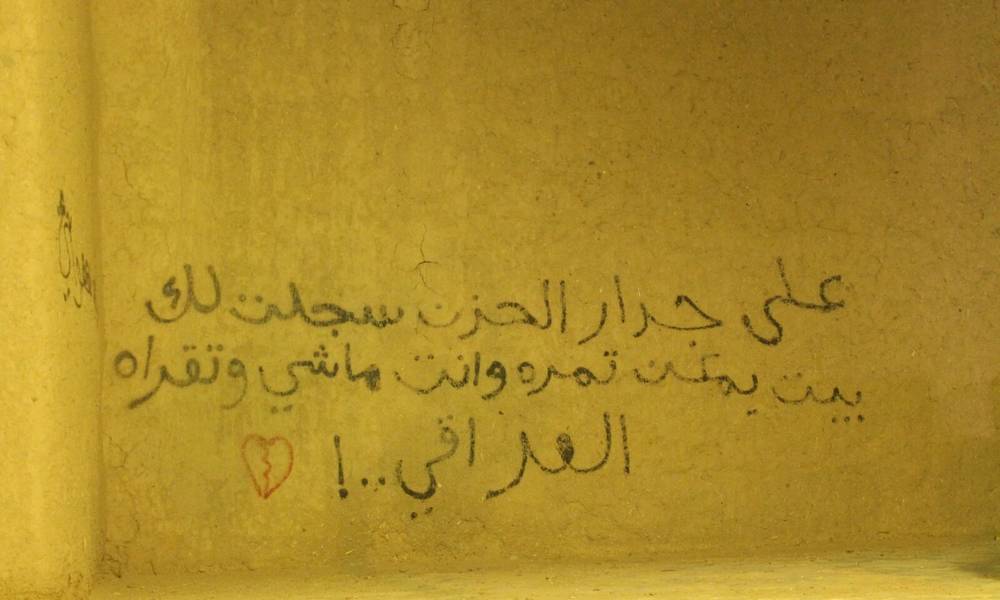 على جدار الحزن سجلت لك
بيت يمكن تمره وانت ماشي وتقراه
العراقي..!